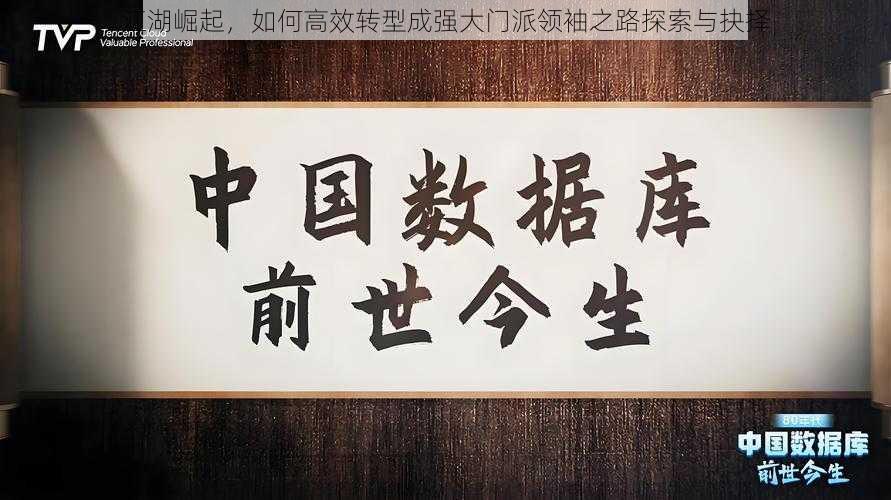 湖崛起，如何高效转型成强大门派领袖之路探索与抉择
TVP
Tencent Cloud
Valuable Professional
中国数据库
前世今生
80年代
中国数据库
前世今生